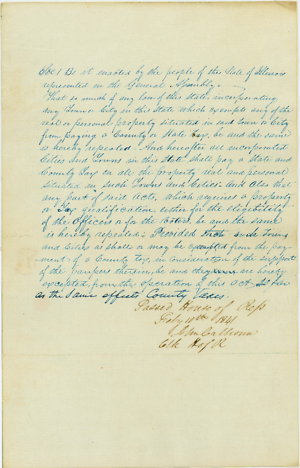 Sec 1 Be it enacted by the people of the State of Illinois
represented in the General Assembly.
That so much of any law of this state, incorporating
any Town or City in this State which exempts any of the
real or personal property situated in said Town or City
from paying a County or State tax, be and the same
is hereby repealed. And hereafter all incorporated
Cities and Towns in this state shall pay a State and
County Tax on all the property real and personal
situated in such Towns and Cities. And also that
any part of said Acts, which requires a property
or Tax qualification either for the eligibility
of the Officers or for the voters be and the same
is hereby repealed; Provided that such Towns
and Cities as shall or may be exempted from the pay-
ment of a County tax, in consideration of the support
of the paupers therein, be and they are hereby
excepted from the operation of this Act so far
as the same effects County Taxes.
Passed House of Reps
Feby 11th 1841
John Calhoun
Clk H of R